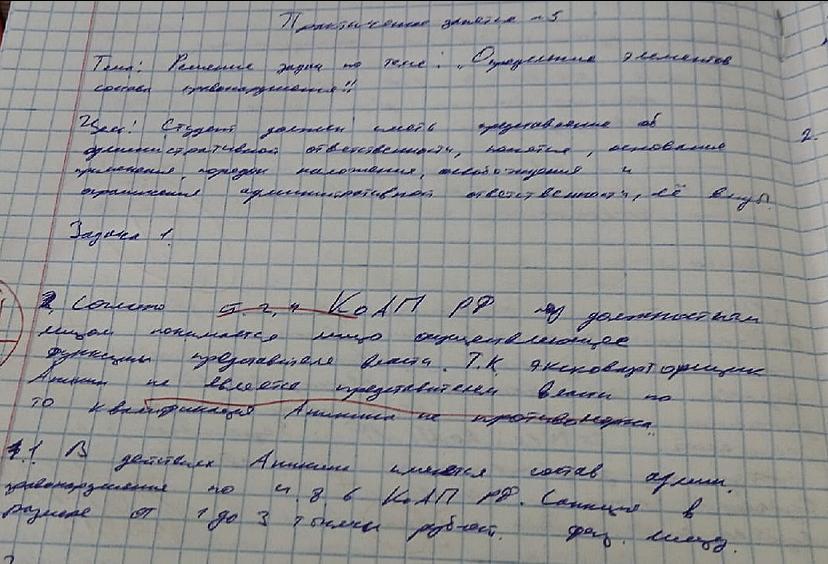 Практическое занятие №5
Тема: Решение задач по теме: „Определение элементов
состава правонарушения"
Цель: Студент должен иметь представление об
административной ответственности, понятия, основания
применения, порядок наложения, освобождения и
ограничения административной ответственности, её виды.
Задача 1.
2. Согласно ст. 2.4 КоАП РФ под должностным
лицом понимается лицо осуществляющее
функции представителя власти. Т.К. экскаваторщик
Аникин не является представителем власти
то квалификация Аникина не
1. В действиях Аникина имеется состав админ.
правонарушения по 8 6 КоАП РФ. Санкция в
размере от 1 до 3 тысячи рублей. физ. лицу.
2.